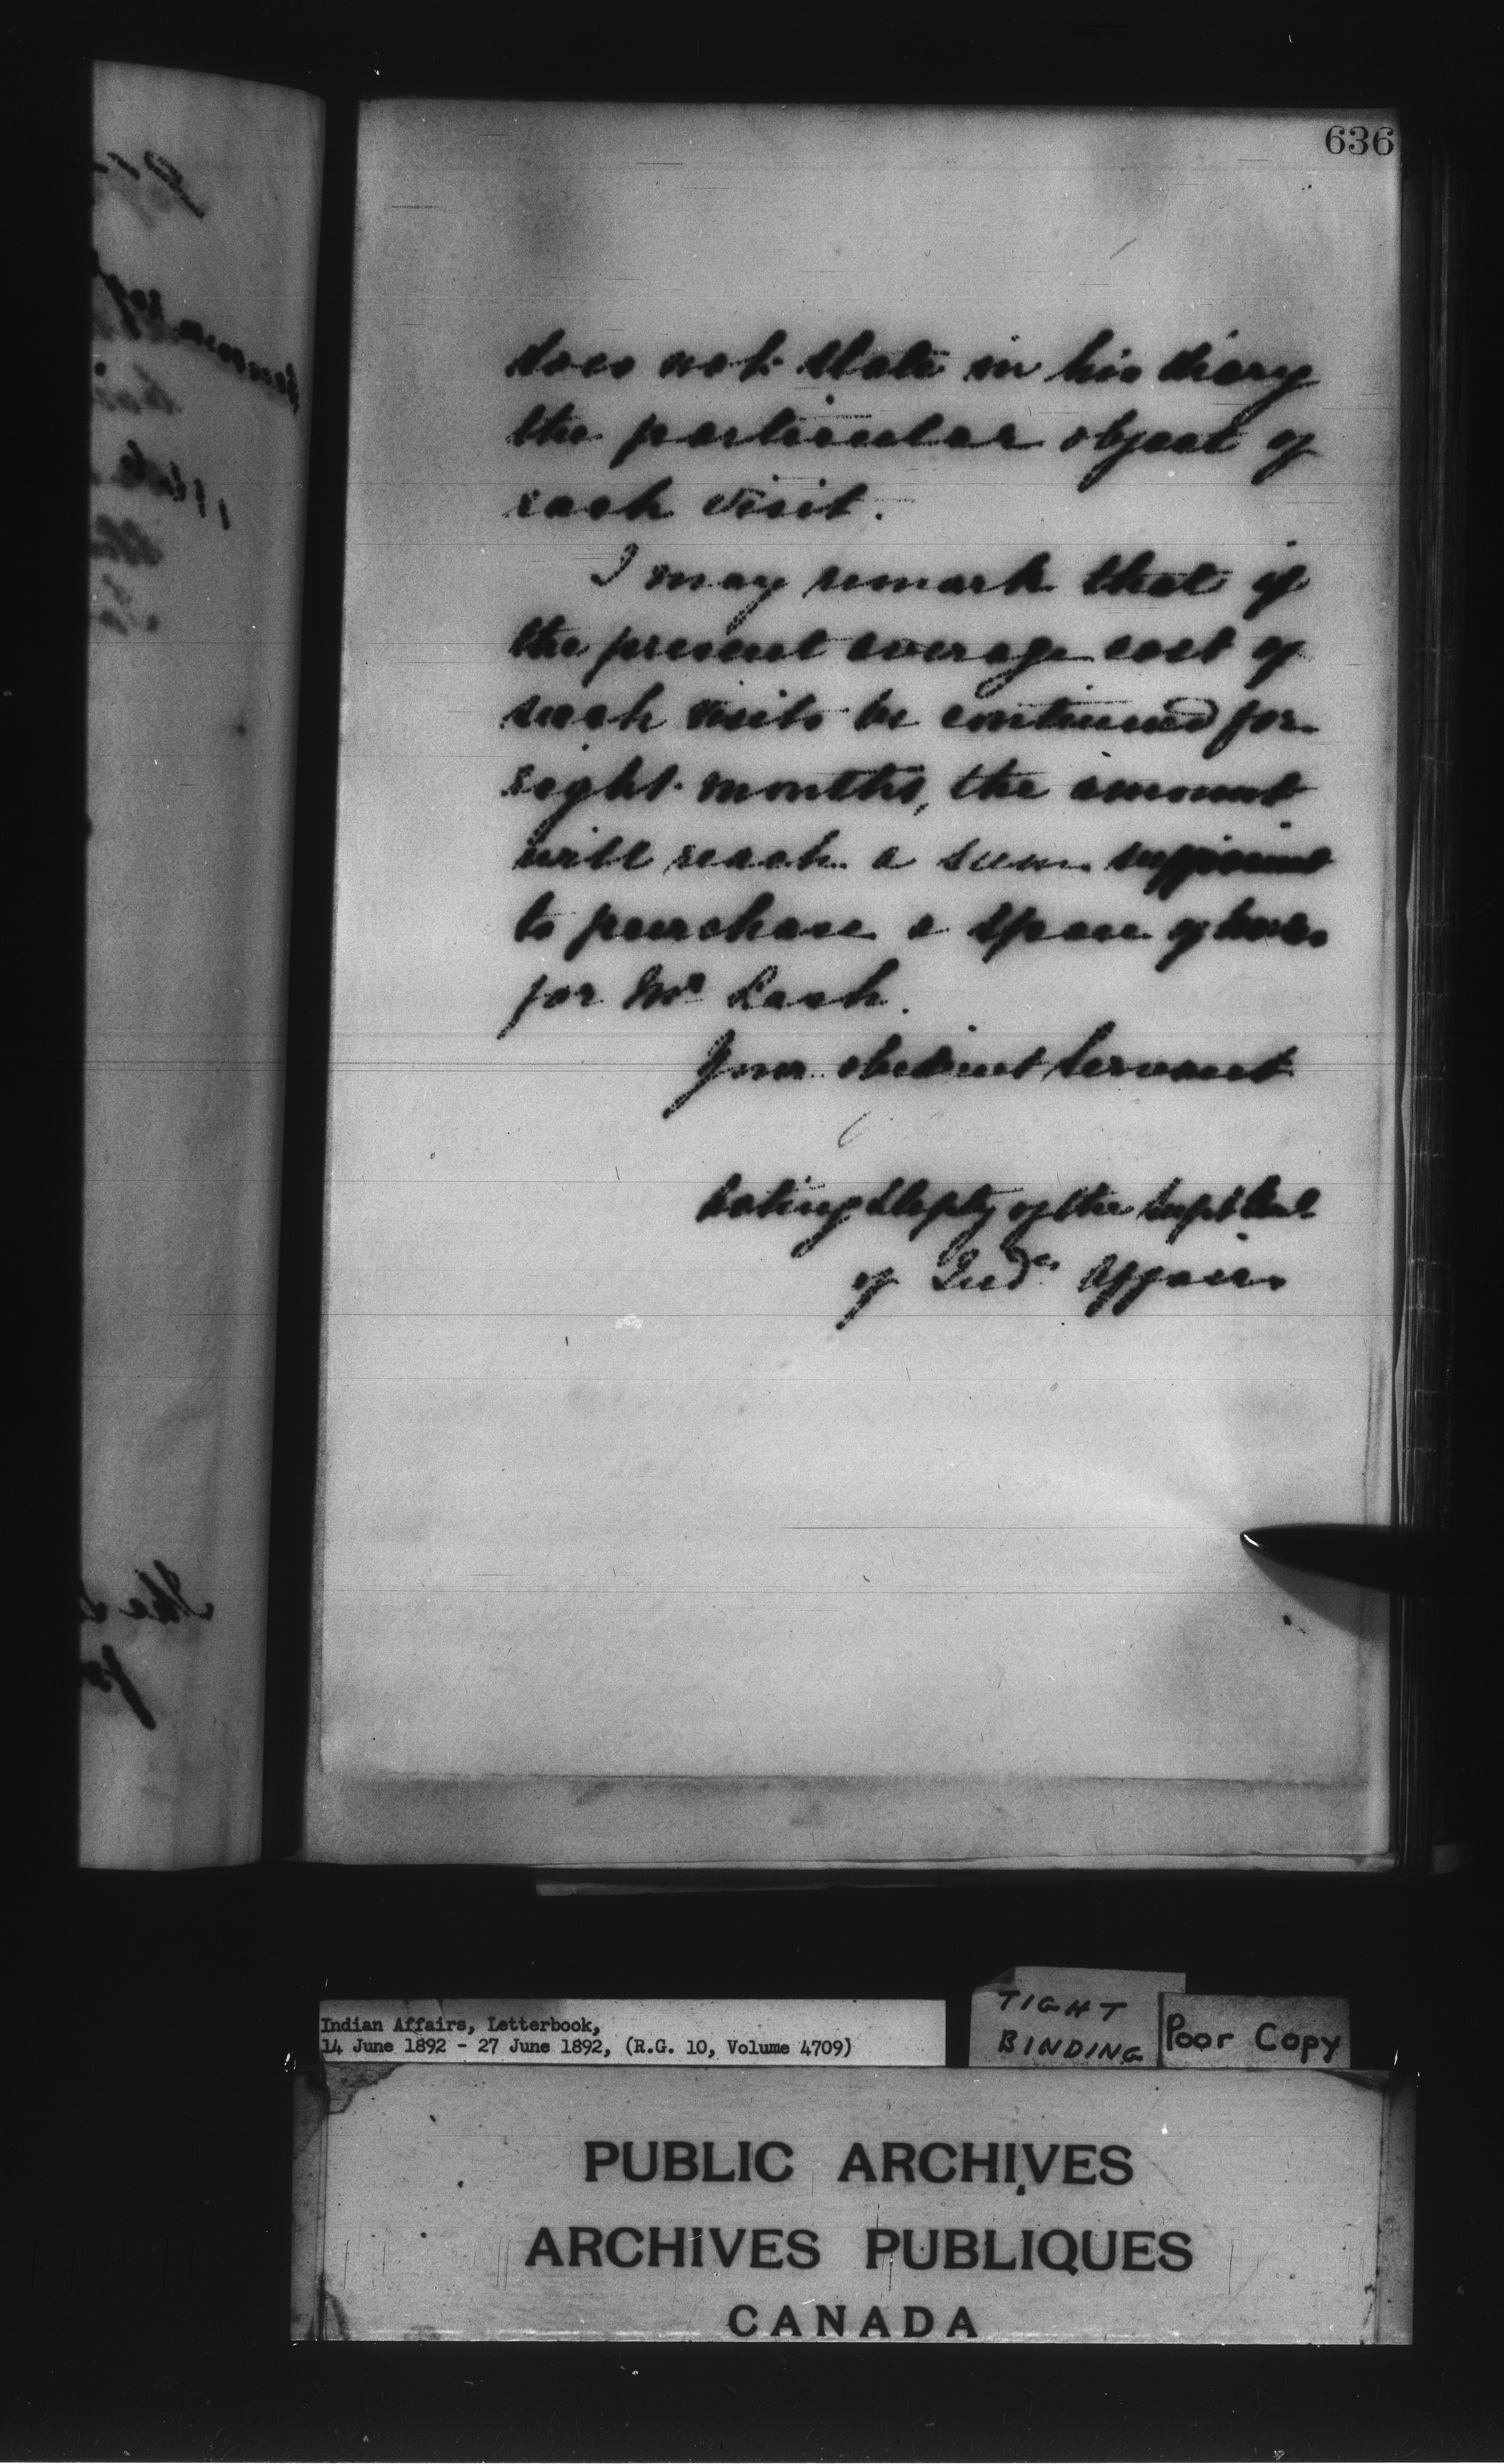 636
does not state in his diary
the particular object of
each visit.
I may remark that if
the present average cost of
such visits be continued for
eight months, the amount
will reach a sum sufficient
to purchase a span of horses
for Mr Lash.
Your obedient Servant
Acting Depty of the Supt Genl
of Indn Affairs
Indian Affairs, Letterbook,
14 June 1892 - 27 June 1892, (R.G. 10, Volume 4709)
TIGHT
BINDING
Poor Copy
PUBLIC ARCHIVES
ARCHIVES PUBLIQUES
CANADA